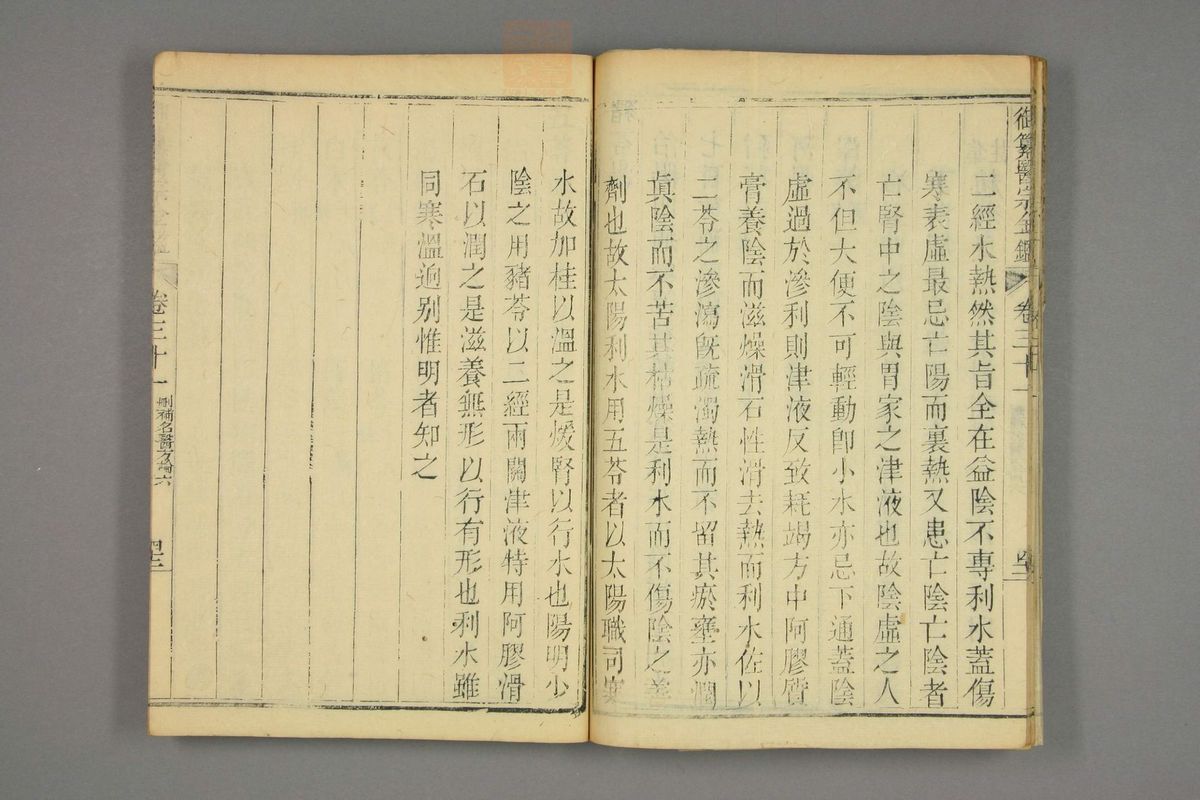 御纂醫宗金鑑
卷三十一
二經水熱然其旨全在益陰不專利水蓋傷
寒表虛最忌亡陽而裏熱又患亡陰亡陰者
亡腎中之陰與胃家之津液也故陰虛之人
不但大便不可輕動卽小水亦忌下通蓋陰
虛過於滲利則津液反致耗竭方中阿膠質
膏養陰而滋燥滑石性滑去熱而利水佐以
二苓之滲瀉旣疏濁熱而不留其瘀壅亦潤
眞陰而不苦其枯燥是利水而不傷陰之善
劑也故太陽利水用五苓者以太陽職司寒
水故加桂以溫之是煖腎以行水也陽明少
陰之用豬苓以二經兩關津液特用阿膠滑
石以潤之是滋養無形以行有形也利水雖
同寒溫逈别惟明者知之
卷三十一
刪補名醫方論六